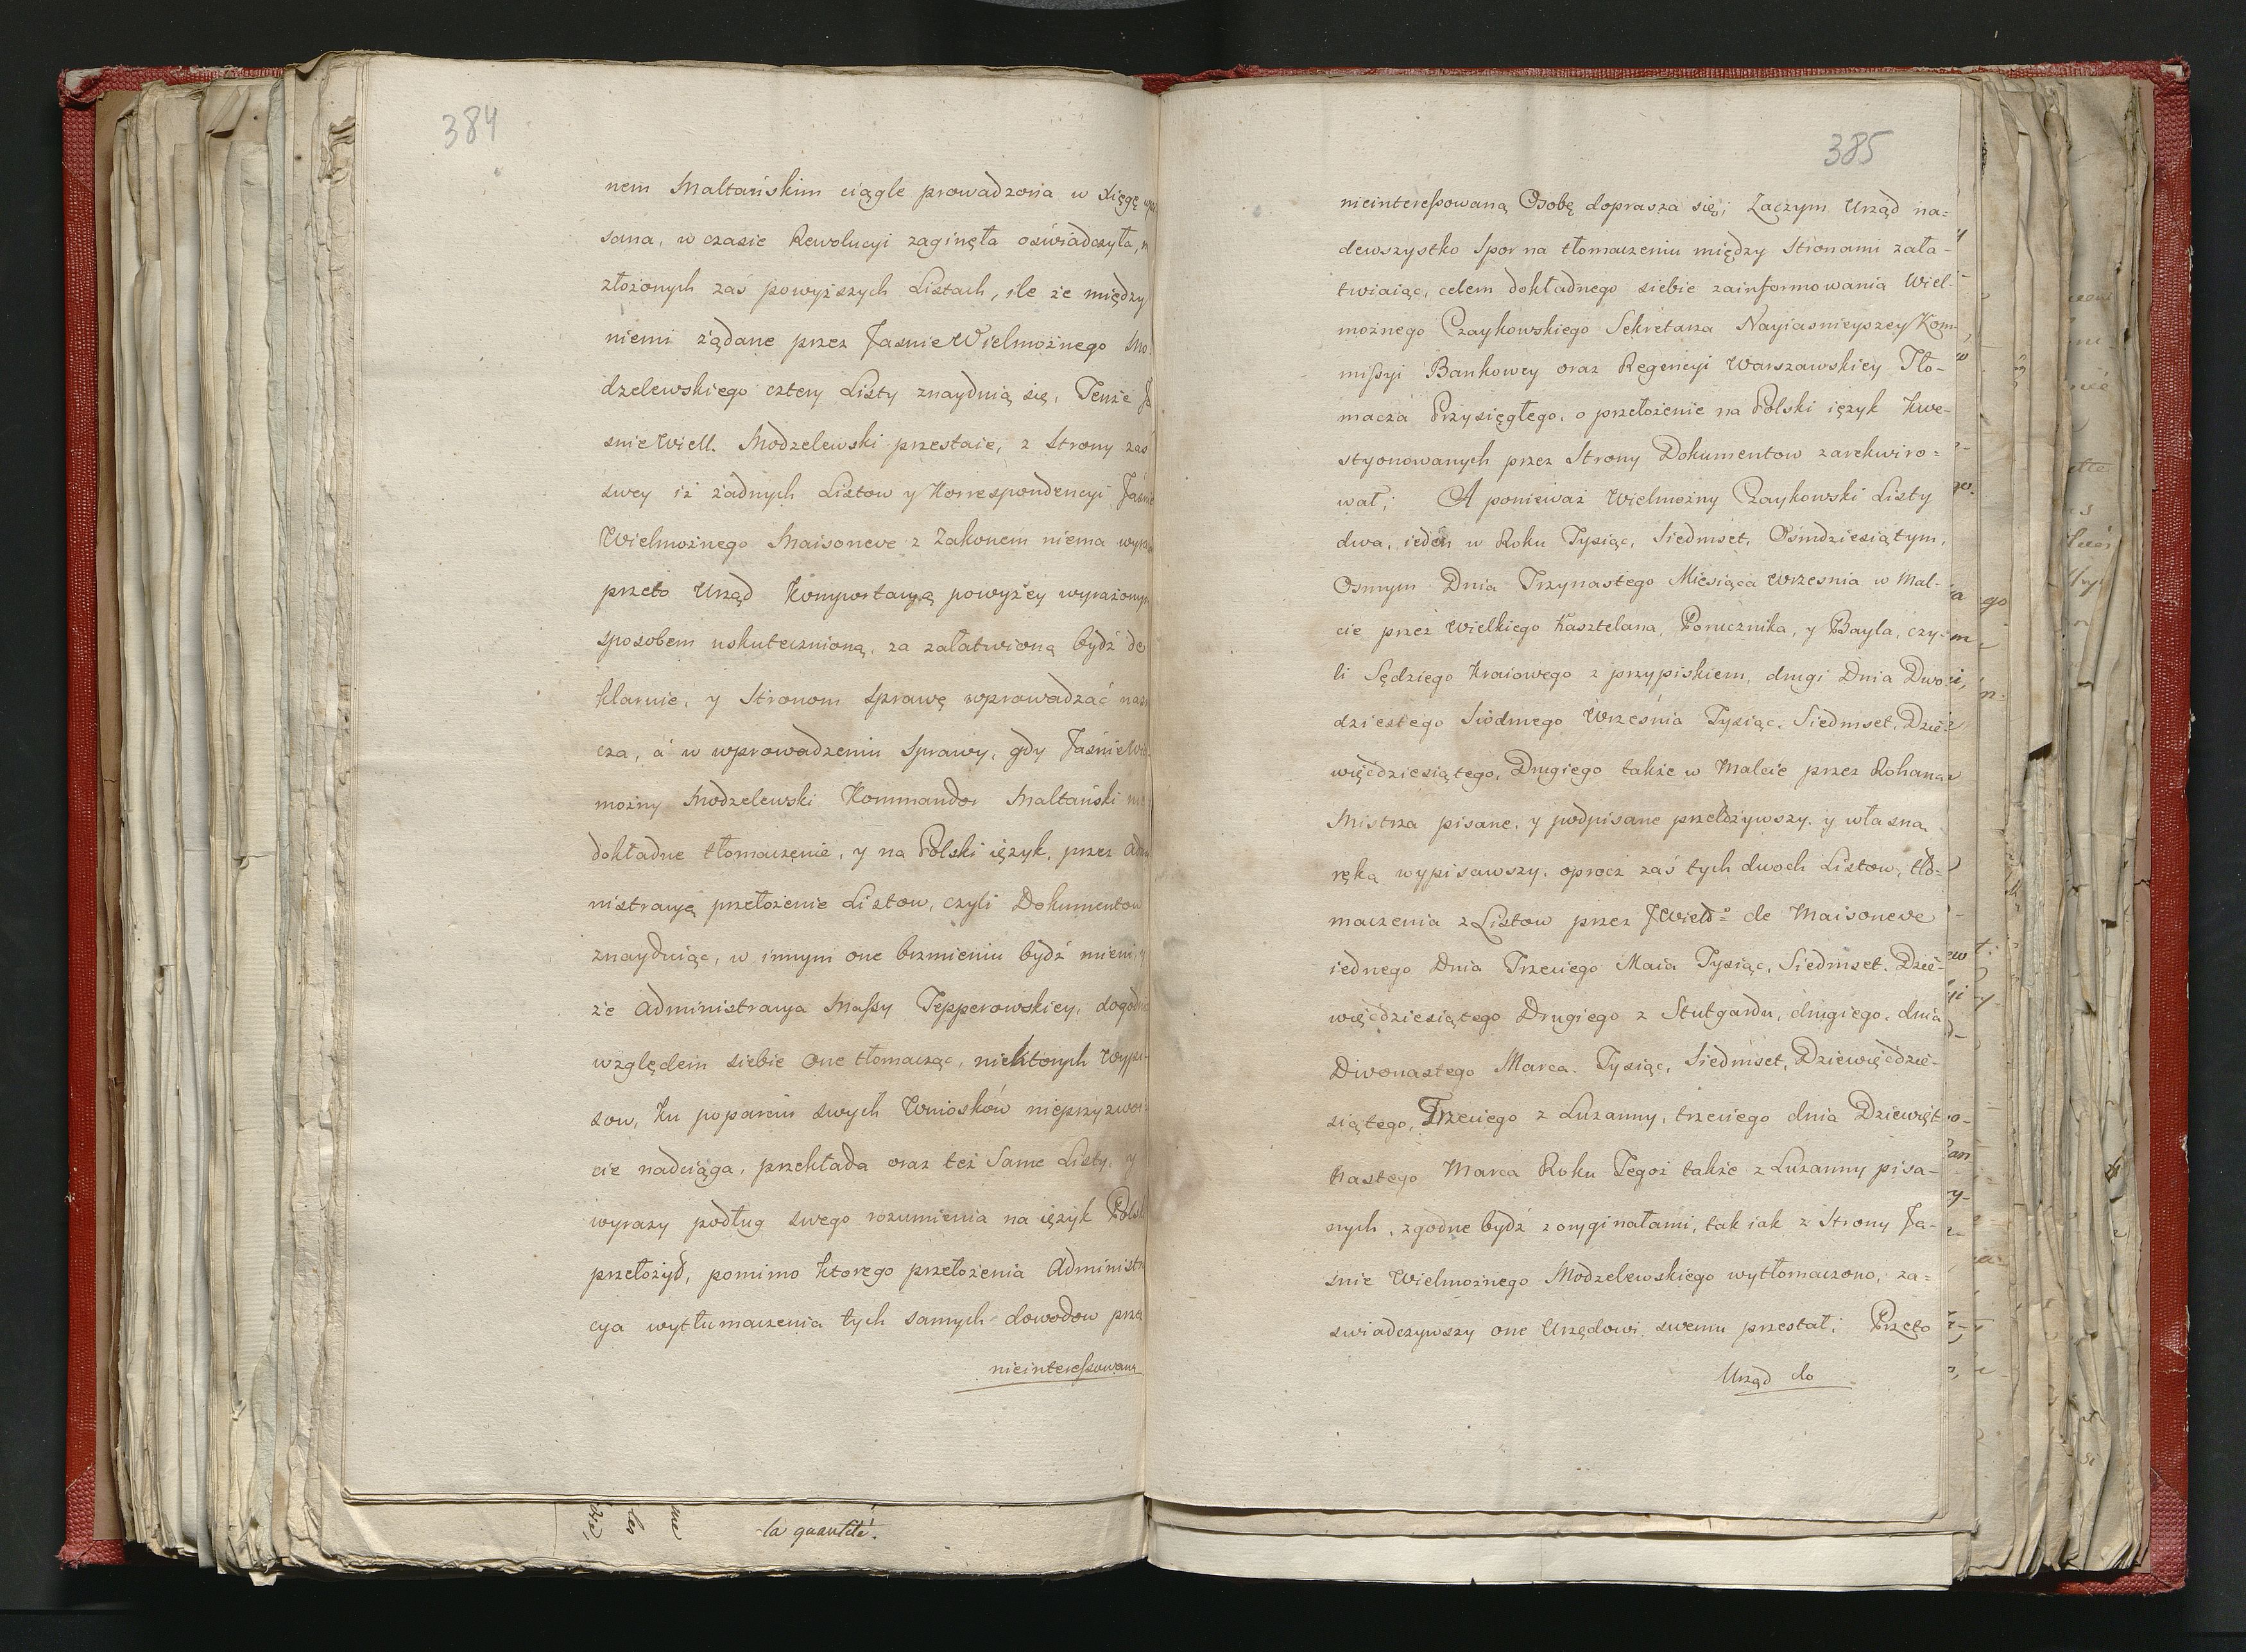 384
nem Maltańskim ciągle prowadzona w xięgę
sana, w czasie Rewolucyi zaginęła oświadczyła,
złożonych zaś powyższych Listach, ile że między
niemi żądane przez JasnieWielmożnego Mo
dzelewskiego cztery Listy znayduią się, Tenże Ja
snieWiell. Modzelewski przestaie, z Strony zaś
swey iż żadnych Listow y Korrespondencyi Jaśnie
Wielmożnego Maisoneve z Zakonem niema
przeto Urząd Komportacyą powyżey wyrażonym
sposobem uskutecznioną, za załatwioną bydź de
klaruie, y Stronom Sprawę wprowadzać
cza, a w wprowadzeniu Sprawy, gdy JaśnieWiel
możny Modzelewski Kommandor Maltański
dokładne tłomaczenie, y na Polski ięzyk, przez Admi
nistracyą przełożenie Listow, czyli Dokumentow
znayduiąc, w innym one brzmieniu bydź mieni, y
że Administracya Massy Tepperowskiey, dogodnie
względem siebie one tłomacząc, niektorych Wypi-
sow, ku poparciu swych Wniosków nieprzyzwoi
cie nadciąga, przekłada oraz też Same Listy, y
wyrazy podług swego rozumienia na ięzyk Polski
przełożył, pomimo ktorego przełożenia Administra
cya wytłumaczenia tych samych dowodow przez
nieinteressowaną
la quantité.
385
nieinteressowaną Osobę doprasza się; Zaczym Urząd na=
dewszystko Spor na tłomaczeniu między Stronami zała-
twiaiąc, celem dokładnego siebie zainformowania Wiel-
możnego Czaykowskiego Sekretarza Nayiasnieyszey Kom-
missyi Bankowey oraz Regencyi Warszawskiey Tło-
macza Przysięgłego, o przełożenie na Polski ięzyk kwe-
styonowanych przez Strony Dokumentow zarekwiro=
wał; A ponieważ Wielmożny Czaykowski Listy
dwa, ieden w Roku Tysiąc, Siedmset, Osmdziesiątym,
Osmym Dnia Trzynastego Miesiąca Wrzesnia w Mal-
cie przez Wielkiego Kasztelana, Porucznika, y Bayla, czy-
li Sędziego Kraiowego z przypiskiem, drugi Dnia Dwo
dziestego Siódmego Września Tysiąc, Siedmset, Dzie-
więćdziesiątego, Drugiego także w Malcie przez Rohana
Mistrza pisane, y podpisane przełożywszy, y własną
ręką wypisawszy, oprocz zaś tych dwoch Listow, tło-
maczenia z Listow przez JWielo de Maisoneve
iednego Dnia Trzeciego Maia Tysiąc, Siedmset, Dzie-
więćdziesiątego Drugiego z Stutgardu, drugiego, dnia
Dwonastego Marca, Tysiąc, Siedmset, Dziewięćdzie-
siątego, Trzeciego z Luzanny, trzeciego dnia Dziewięt
nastego Marca Roku Tegoż także z Luzanny pisa-
nych, zgodne bydź z oryginałami, tak iak z Strony Ja-
snie Wielmożnego Modzelewskiego wytłomaczono, za=
swiadczywszy one Urzędowi swemu przestał; Przeto
Urząd do